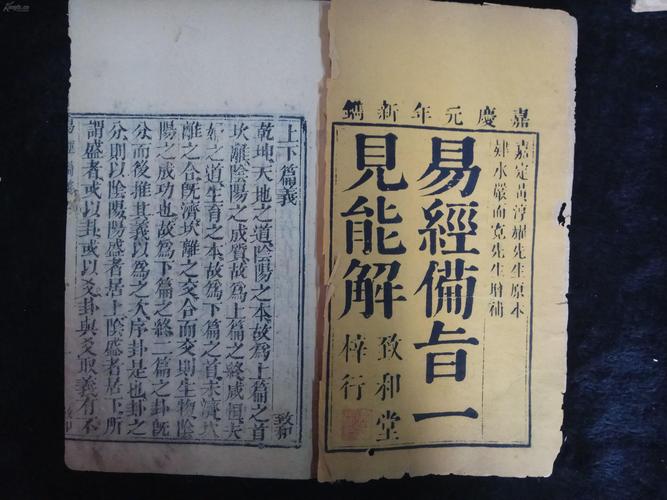 嘉慶元年新鐫
嘉定黃淳耀先生原本
水嚴而寬先生增補
易經備旨一
見能解
致和堂
梓行
上下篇義
乾坤天地之道陰陽之本故為上篇之首
坎離陰陽之成質故為上篇之終咸恒夫
婦之道生育之本故為下篇之首未濟坎
離之合旣濟坎離之交合而交則生物陰
陽之成功也故為下篇之終二篇之卦旣
分而後推其義以為之次序卦是也卦之
分則以陰陽陽盛者居上陰盛者居下所
謂盛者或以卦或以爻卦與爻取義有不
致和